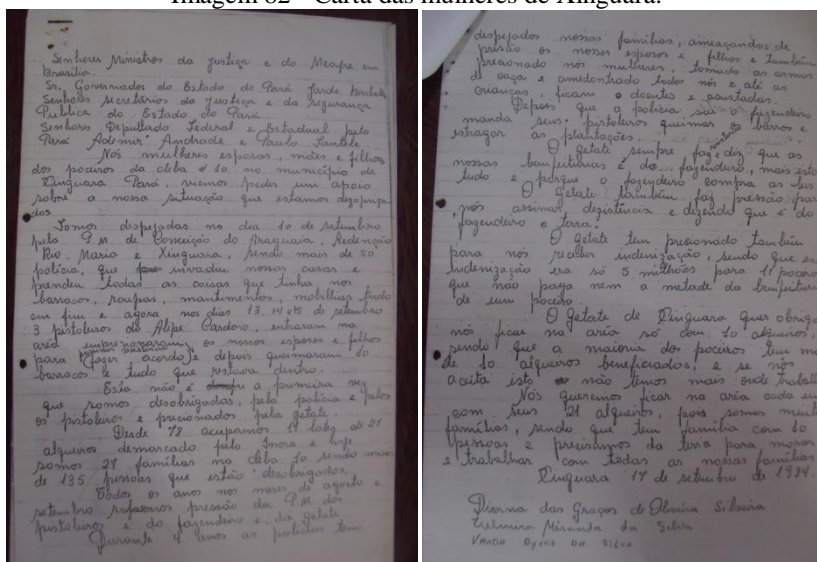 Imagem 82 - Carta das mulheres de Xinguara.
Senhores Ministros da Justiça e do Meafre em
Brasília.
Sr. Governados do Estado do Pará Jarde Barbalh
Senhores Secretários da Justiça e da segurança
Pública do Estado do Pará.
Senhores Deputado Federal e Estadual pelo
Pará Ademir Andrade e Paulo
Nós mulheres esposas, mães e filhas
dos poceiros da cleba 10 no município de
Xinguara Pará, viemos pedir um apoio
sobre a nossa situação que estamos
dos
Somos despejadas no dia 10 de setembro
pela P.M. de Conceição do Araguaia, Redenção
Rio Maria e Xinguara, sendo mais de 50
polícia, que invadiu nossas casas e
prendeu todas as coisas que tinha nos
barracos, roupas, mantimentos, mobilhas tudo
em fim e agora nos dias 13, 14 e 15 de setembro
3 pistoleiros do Alipe Cardoso, entraram na
aria os nossos esposos e filhos
para (fazer acordo) e depois queimaram 10
barracos e tudo que dentro.
Esta não é a primeira vez
que somos desobrigadas, pela polícia e pelos
os pistoleiros e precionados pela getate.
Desde 78 ocupamos 11 lotes de 21
alqueiros demarcado pelo Incra e hoje
somos 21 famílias na cleba 10 sendo mais
de 135 pessoas que estão desobrigados.
Todos os anos nos meses de agosto e
setembro pressão da P.M. dos
pistoleiros e do fazendeiro e da getate.
Durante 4 anos as polícias tem
despejados nossas famílias, ameaçandos de
prisão os nossos esposos e filhos e também
precionado nós mulheres, tomado as armas
de caça e amidontrado todos nós e até as
crianças, ficam doentes e asustadas.
Depois que a polícia sai o fazendeiro
manda seus pistoleiros queimar os barros e
estragar as plantações.
O getate sempre faz, diz que as
nossas benfeiturias é do fazendeiro, mais isto
tudo e porque o fazendeiro compra as
O getate também faz pressão para
nós assinar desistência e dizendo que é do
fazendeiro a terra.
O getate tem precionado também
para nós receber indenização, sendo que es
indenização era só 5 milhões para 11 poceros
que não paga nem a metade da benfeitura
de um poceiro.
O getate de Xinguara quer obriga
nós ficar na aria só com 10 alqueiros,
sendo que a maioria dos poceiros tem ma
de 10 alqueiros beneficiados, e se nós
aceita isto não temos mais onde trabalh
Nós queremos ficar na aria cada um
com seus 21 alqueiros, pois somos muit
famílias, sendo que tem família com 10
pessoas e precisamos da terra para morar
e trabalhar com todas as nossas famílias
Xinguara 17 de setembro de 1984.
Divina das Graças de Oliveira Silveira
Miranda da Silva
VANDA DA SILVA